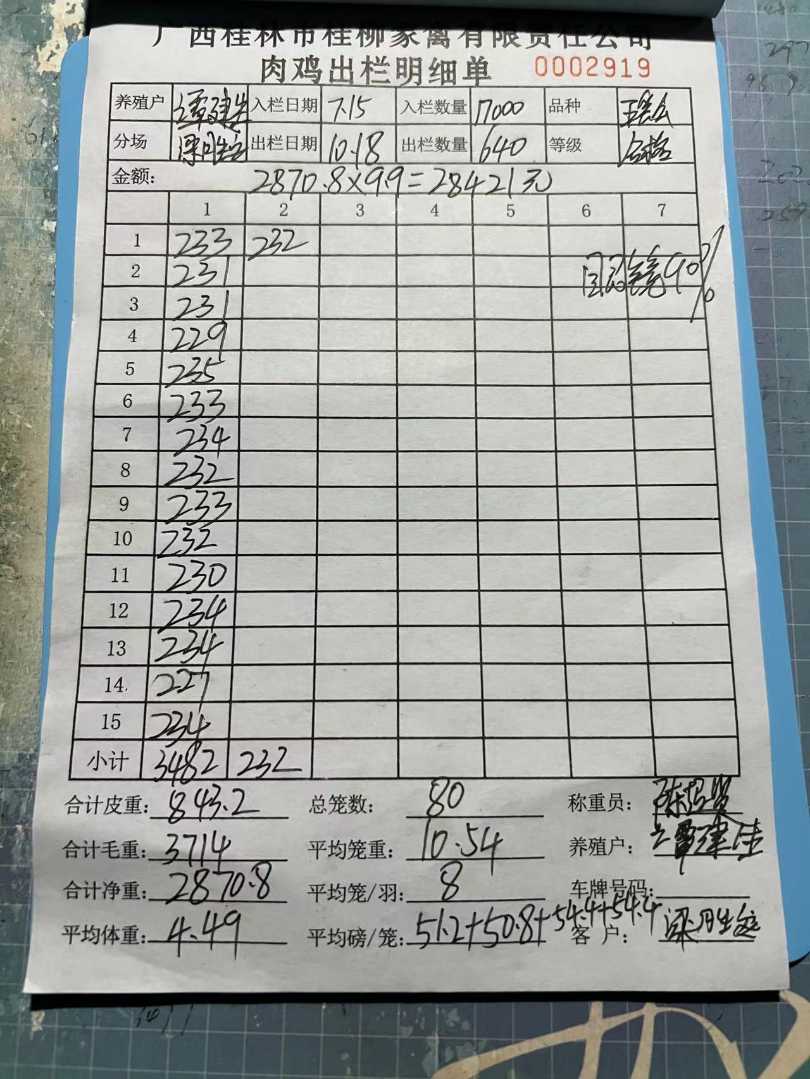 广西桂林市桂柳家禽有限责任公司
肉鸡出栏明细单 0002919
养殖户 谭建生 入栏日期 7.15 入栏数量 17000 品种
分场 出栏日期 10.18 出栏数量 640 等级 合格
金额: 2870.8×9.9=28421元
1 2 3 4 5 6 7
1 233 232
2 231 90%
3 231
4 229
5 235
6 233
7 234
8 232
9 233
10 232
11 230
12 234
13 234
14 227
15 234
小计 3482 232
合计皮重: 843.2 总笼数: 80 称重员:
合计毛重: 3714 平均笼重: 10.54 养殖户:
合计净重: 2870.8 平均笼/羽: 8 车牌号码:
平均体重: 4.49 平均磅/笼: 51.2+50.8+54.4+54.4 客户: